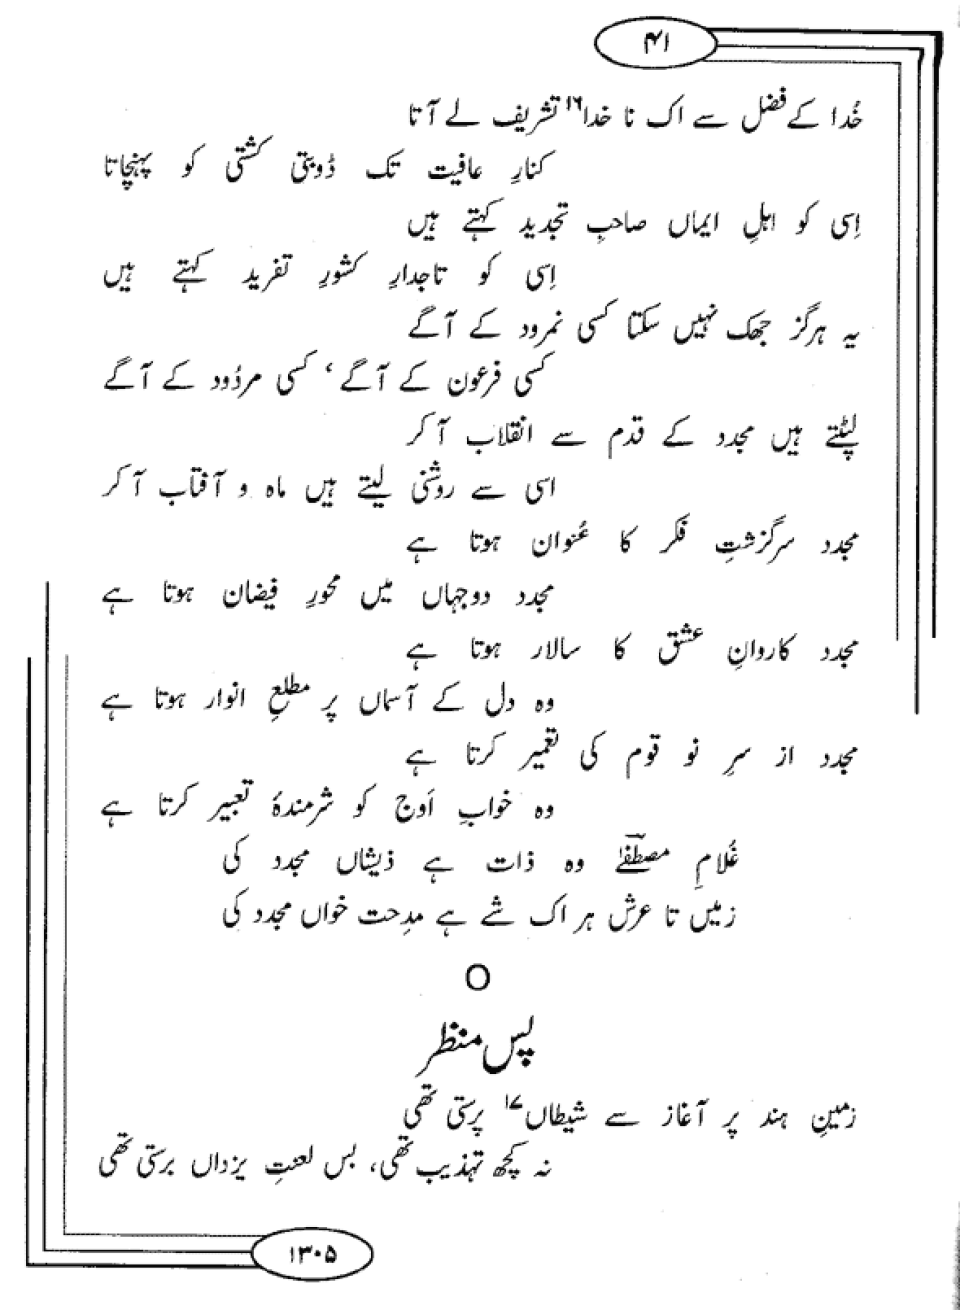 ۴۱
خُدا کے فضل سے اک نا خدا۱۶ تشریف لے آتا
کنارِ عافیت تک ڈوبتی کشتی کو پہنچاتا
اِسی کو اہلِ ایماں صاحبِ تجدید کہتے ہیں
اِسی کو تاجدارِ کشورِ تفرید کہتے ہیں
یہ ہرگز جھک نہیں سکتا کسی نمرود کے آگے
کسی فرعون کے آگے، کسی مردُود کے آگے
لپٹتے ہیں مجدد کے قدم سے انقلاب آکر
اسی سے روشنی لیتے ہیں ماہ و آفتاب آکر
مجدد سرگزشتِ فکر کا عُنوان ہوتا ہے
مجدد دوجہاں میں محورِ فیضان ہوتا ہے
مجدد کاروانِ عشق کا سالار ہوتا ہے
وہ دل کے آسماں پر مطلعِ انوار ہوتا ہے
مجدد از سرِ نو قوم کی تعمیر کرتا ہے
وہ خوابِ اَوج کو شرمندۂ تعبیر کرتا ہے
غُلامِ مصطفےٰؐ وہ ذات ہے ذیشاں مجدد کی
زمیں تا عرش ہر اک شے ہے مدِحت خواں مجدد کی
O
پس منظر
زمینِ ہند پر آغاز سے شیطاں۱۷ پرستی تھی
نہ کچھ تہذیب تھی، بس لعنتِ یزداں برستی تھی
۱۳۰۵